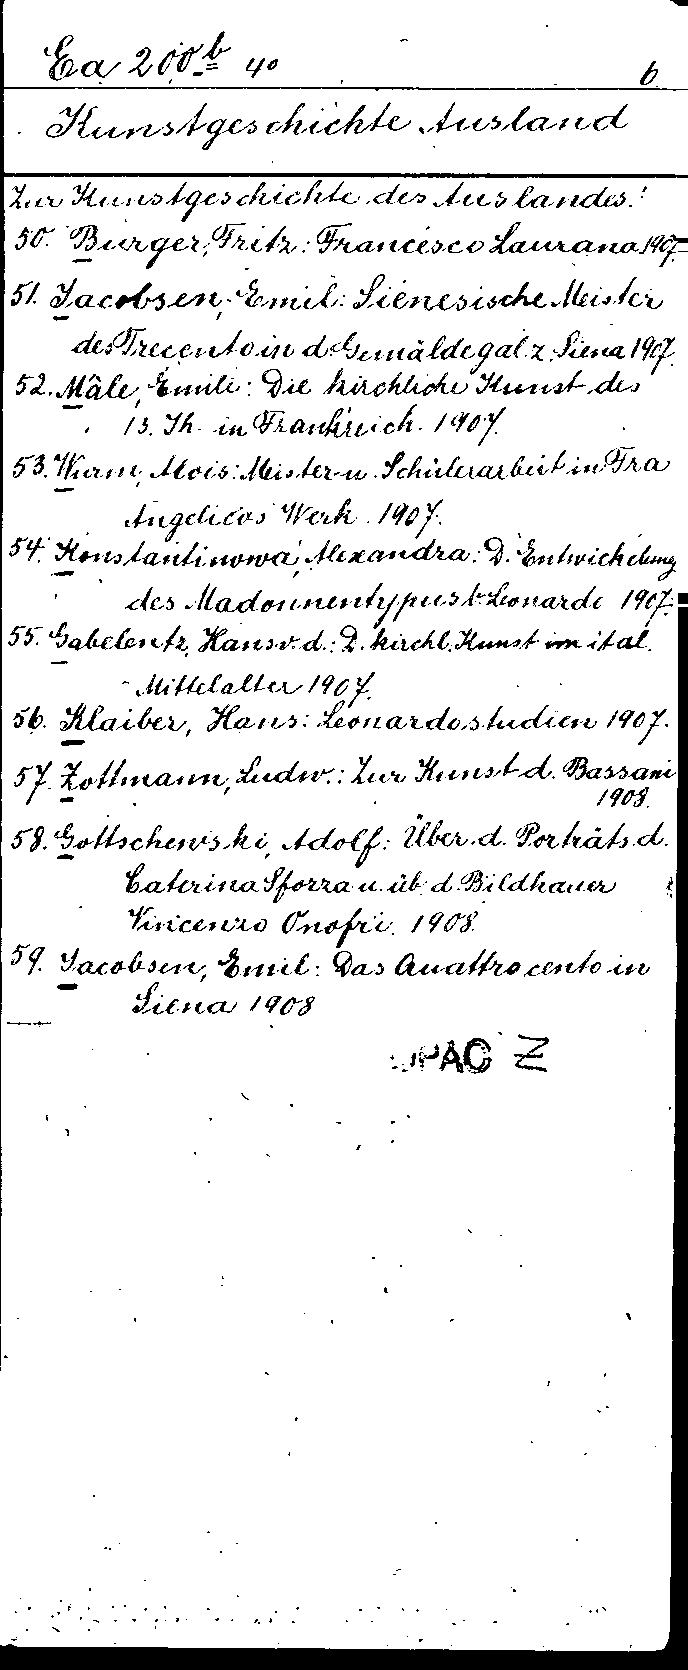 Ea 200b 4o 6
Kunstgeschichte Ausland
Zur Kunstgeschichte des Auslandes:
50. Burger, Fritz: Francesco Laurana 1907.
51. Jacobsen, Emil: Sienesische Meister
des Trecento in d. Gemäldegal. z. Siena 1907.
52. Mâle, Emile: Die kirchliche Kunst des
13. Jh. in Frankreich. 1907.
53. Wurm, Alois: Meister- u. Schülerarbeit in Fra
Angelicos Werk. 1907.
54. Konstantinowa, Alexandra: D. Entwickelung
des Madonnentypus b. Leonardo 1907.
55. Gabelentz, Hans v. d.: D. kirchl. Kunst im ital.
Mittelalter 1907.
56. Klaiber, Hans: Leonardostudien 1907.
57. Zottmann, Ludw.: Zur Kunst d. Bassani
1908.
58. Gottschewski, Adolf: Über d. Porträts d.
Caterina Sforza u. üb. d. Bildhauer
Vincenzo Onofri. 1908.
59. Jacobsen, Emil: Das Quattrocento in
Siena 1908
OPAC Z